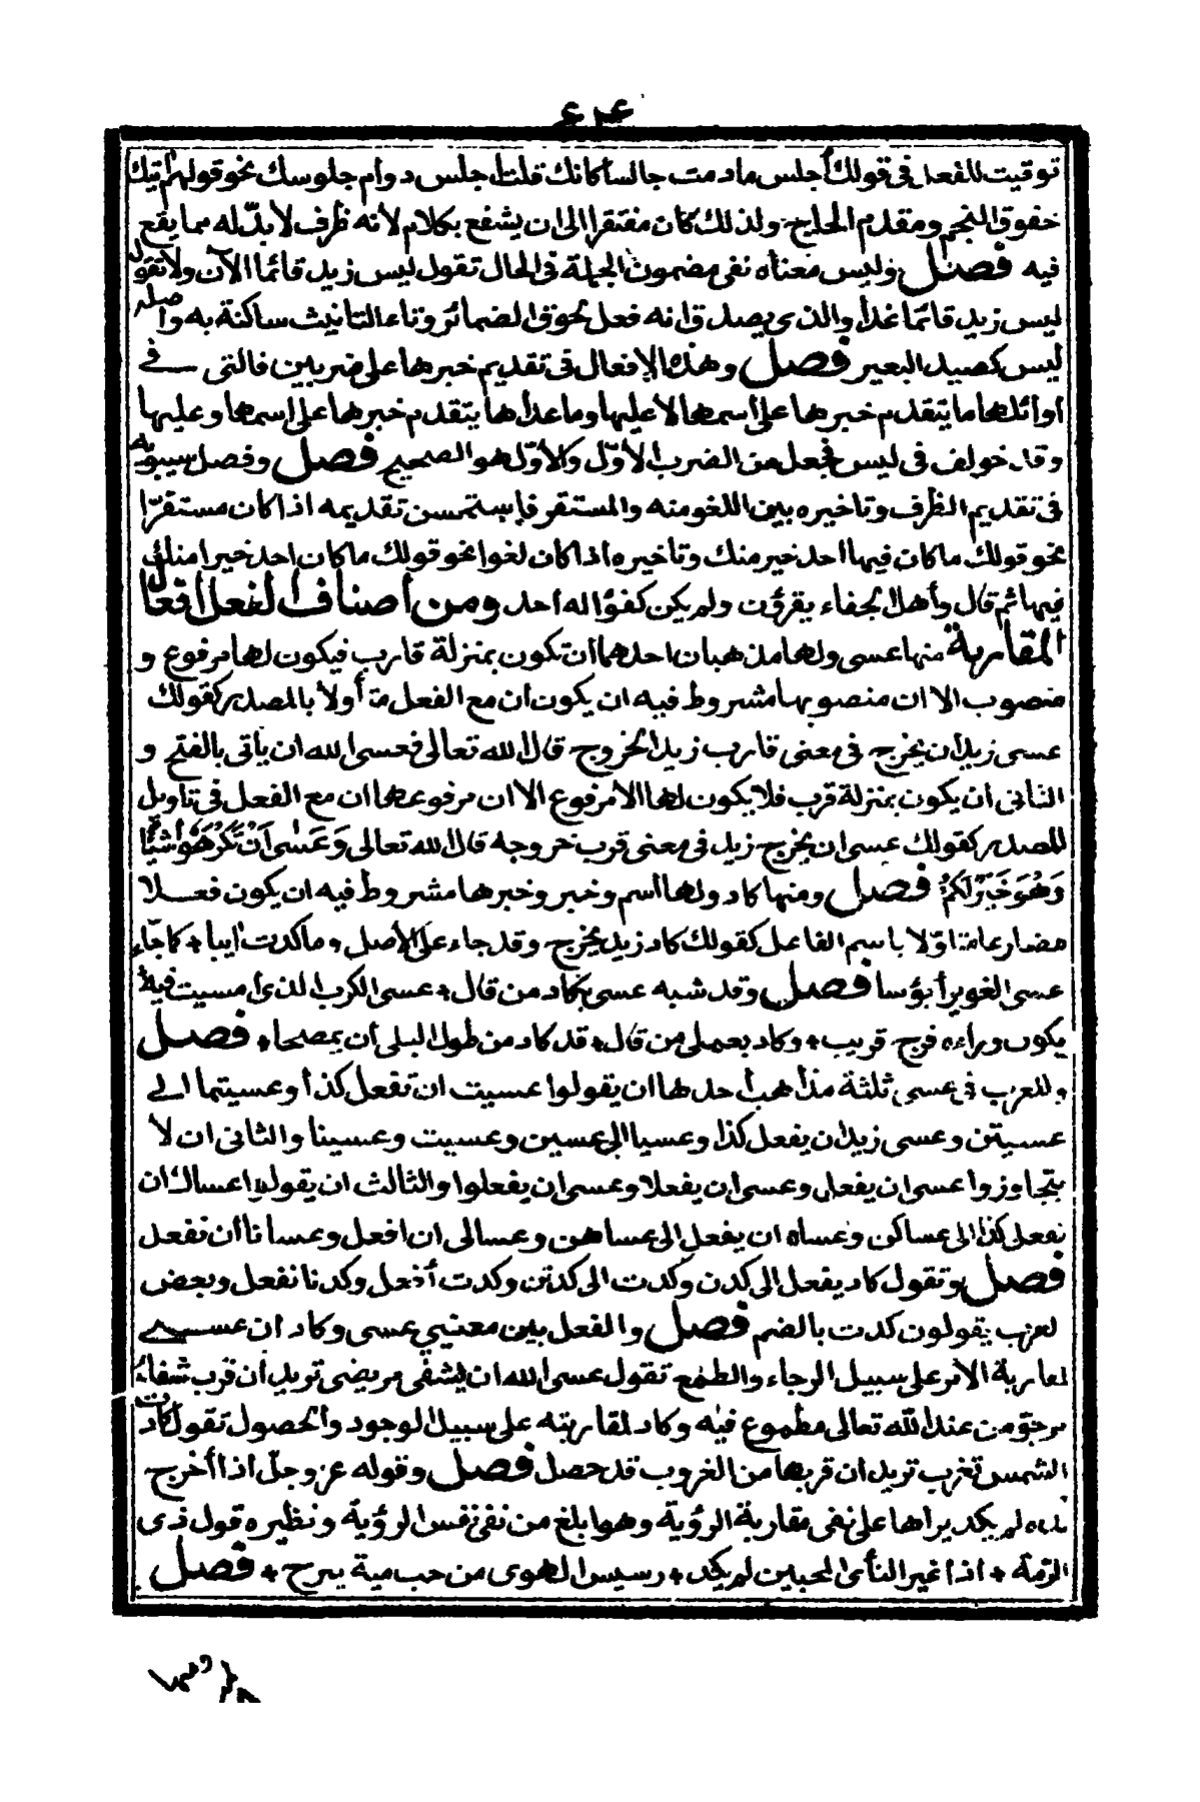 توقيت للفعل فى قولك أجلس مادمت جالسا كانك قلت اجلس دوام جلوسك نحو قولهم اتيك
خفوق النجم ومقدم الحاج ولذلك كان مفتقرا الى ان يشفع بكلام لأنه ظرف لا بدّ له مما يقع
فيه فصل وليس معناه نفى مضمون الجملة فى الحال تقول ليس زيد قائما الآن ولا تقول
ليس زيد قائما غدا والذى يصدق انه فعل لحوق الضمائر وتاء التانيث ساكنة به واصله
ليس كصيد البعير فصل وهذه الافعال فى تقديم خبرها على ضربين فالتى فى
اوائلها ما يتقدم خبرها على اسمها لا عليها وما عداها يتقدم خبرها على اسمها وعليها
وقد خولف فى ليس فجعل من الضرب الأوّل والأوّل هو الصحيح فصل وفصل سيبويه
فى تقديم الظرف وتاخيره بين اللغو منه والمستقر فاستحسن تقديمه اذا كان مستقرّا
نحو قولك ما كان فيها احد خير منك وتاخيره اذا كان لغوا نحو قولك ما كان احد خيرا منك
فيها ثم قال وأهل الجفاء يقرؤن ولم يكن كفؤا له احد ومن أصناف الفعل أفعال
المقاربة منها عسى ولها مذهبان احدهما أن تكون بمنزلة قارب فيكون لها مرفوع و
منصوب الا ان منصوبها مشروط فيه ان يكون ان مع الفعل متأولا بالمصدر كقولك
عسى زيد ان يخرج فى معنى قارب زيد الخروج قال الله تعالى فعسى الله ان يأتى بالفتح و
الثانى ان يكون بمنزلة قرب فلا يكون لها الا مرفوع الا ان مرفوعها ان مع الفعل فى تاويل
المصدر كقولك عسى ان يخرج زيد فى معنى قرب خروجه قال الله تعالى وَعَسٰى اَنْ تَكْرَهُوْا شَيْئًا
وَهُوَ خَيْرٌ لَكُمْ فصل ومنها كاد ولها اسم وخبر وخبرها مشروط فيه ان يكون فعلا
مضارعا متاوّلا باسم الفاعل كقولك كاد زيد يخرج وقد جاء على الاصل وما كدت آيبا كما جاء
عسى الغوير أبؤسا فصل وقد شبه عسى بكاد من قال عسى الكرب الذى امسيت فيه
يكون وراءه فرج قريب وكاد بعسى من قال قد كاد من طول البلى أن يمصحا فصل
وللعرب فى عسى ثلثة مذاهب أحدها ان يقولوا عسيت ان تفعل كذا وعسيتما الى
عسيتن وعسى زيد ان يفعل كذا وعسيا الى عسين وعسيت وعسينا والثانى ان لا
يتجاوزوا عسى ان يفعل وعسى ان يفعلا وعسى ان يفعلوا والثالث ان يقولوا عساك ان
تفعل كذا الى عساكن وعساه ان يفعل الى عساهن وعسانى ان افعل وعسانا أن تفعل
فصل وتقول كاد يفعل الى كدن وكدت الى كدتن وكدت أفعل وكدنا نفعل وبعض
لعرب يقولون كدت بالضم فصل والفعل بين معنيي عسى وكاد ان عسى
لمقاربة الأمر على سبيل الرجاء والطمع تقول عسى الله ان يشفى مريضى تريد أن قرب شفائه
مرجوّ من عند الله تعالى مطموع فيه وكاد لمقاربته على سبيل الوجود والحصول تقول كادت
الشمس تغرب تريد ان قربها من الغروب قد حصل فصل وقوله عزوجلّ اذا أخرج
يده لم يكد يراها على نفى مقاربة الرؤية وهو ابلغ من نفى نفس الرؤية ونظيره قول ذى
الرمّة اذا غير النأى المحبين لم يكد رسيس الهوى من حب مية يبرح فصل